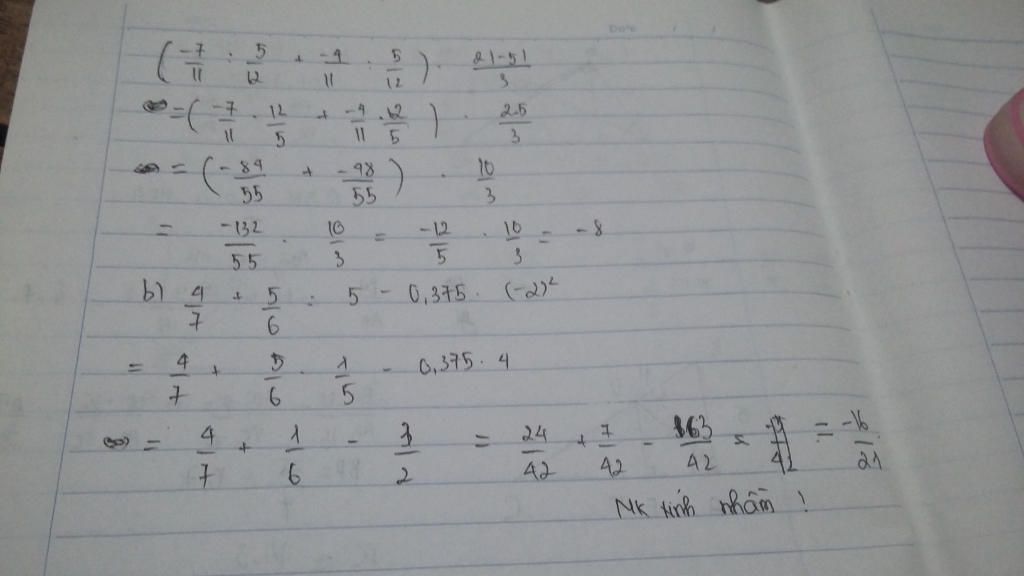 ( -7/11 : 5/12 + -4/11 : 5/12 ) . 2|-5|/3
= ( -7/11 . 12/5 + -4/11 . 12/5 ) . 2.5/3
= ( -84/55 + -48/55 ) . 10/3
= -132/55 . 10/3 = -12/5 . 10/3 = -8
b) 4/7 + 5/6 : 5 - 0,375 . (-2)²
= 4/7 + 5/6 . 1/5 - 0,375 . 4
= 4/7 + 1/6 - 3/2 = 24/42 + 7/42 - 63/42 = = -16/21
Mk tính nhầm !